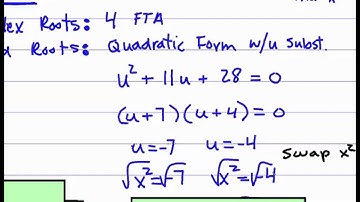 lex Roots: 4 FTA
Roots: Quadratic Form w/u subst.
u² + 11u + 28 = 0
(u+7)(u+4) = 0
u=-7 u=-4
√x²=√-7 √x²=√-4 swap x²